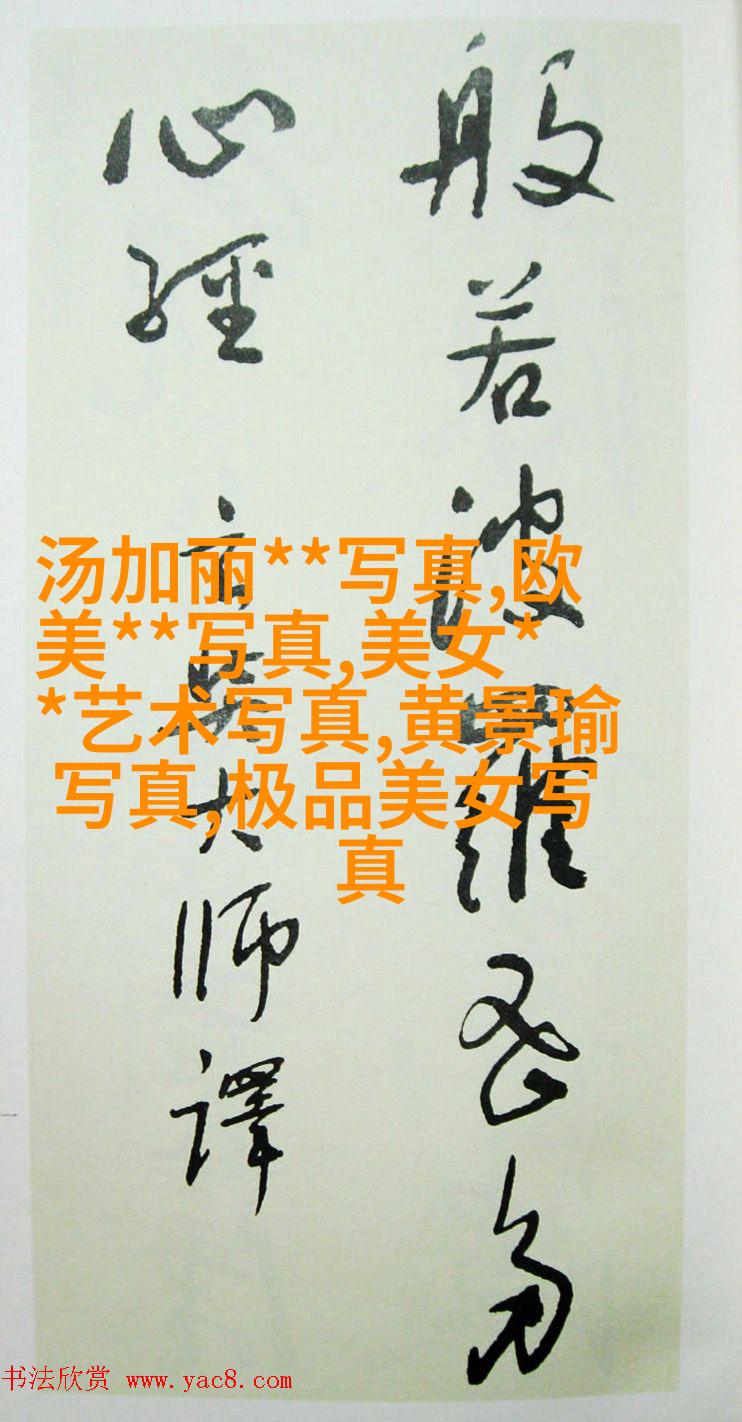 般若波羅密多
心經 玄奘大師譯
汤加丽**写真,欧
美**写真,美女*
*艺术写真,黄景瑜
写真,极品美女写
真
书法欣赏 www.yac8.com